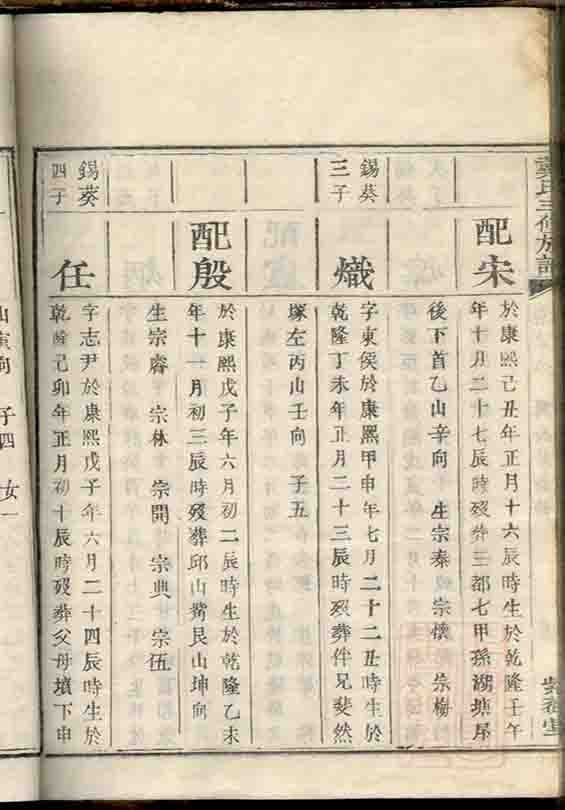 氏三修族譜
配宋
於康熙己丑年正月十六辰時生於乾隆壬午
年十月二十七辰時歿葬三都七甲孫湖塘屋
後下首乙山辛向 生宗泰 宗懷 宗榆
錫葵三子
熾
字東侯於康熙甲申年七月二十二丑時生於
乾隆丁未年正月二十三辰時歿葬伴兄斐然
塚左丙山壬向 子五
配殷
於康熙戊子年六月初二辰時生於乾隆乙未
年十一月初三辰時歿葬邱山嘴艮山坤向
生宗睿 宗林 宗開 宗典 宗伍
錫葵四子
任
字志尹於康熙戊子年六月二十四辰時生於
乾隆己卯年正月初十辰時歿葬父母墳下申
山寅向 子四 女一